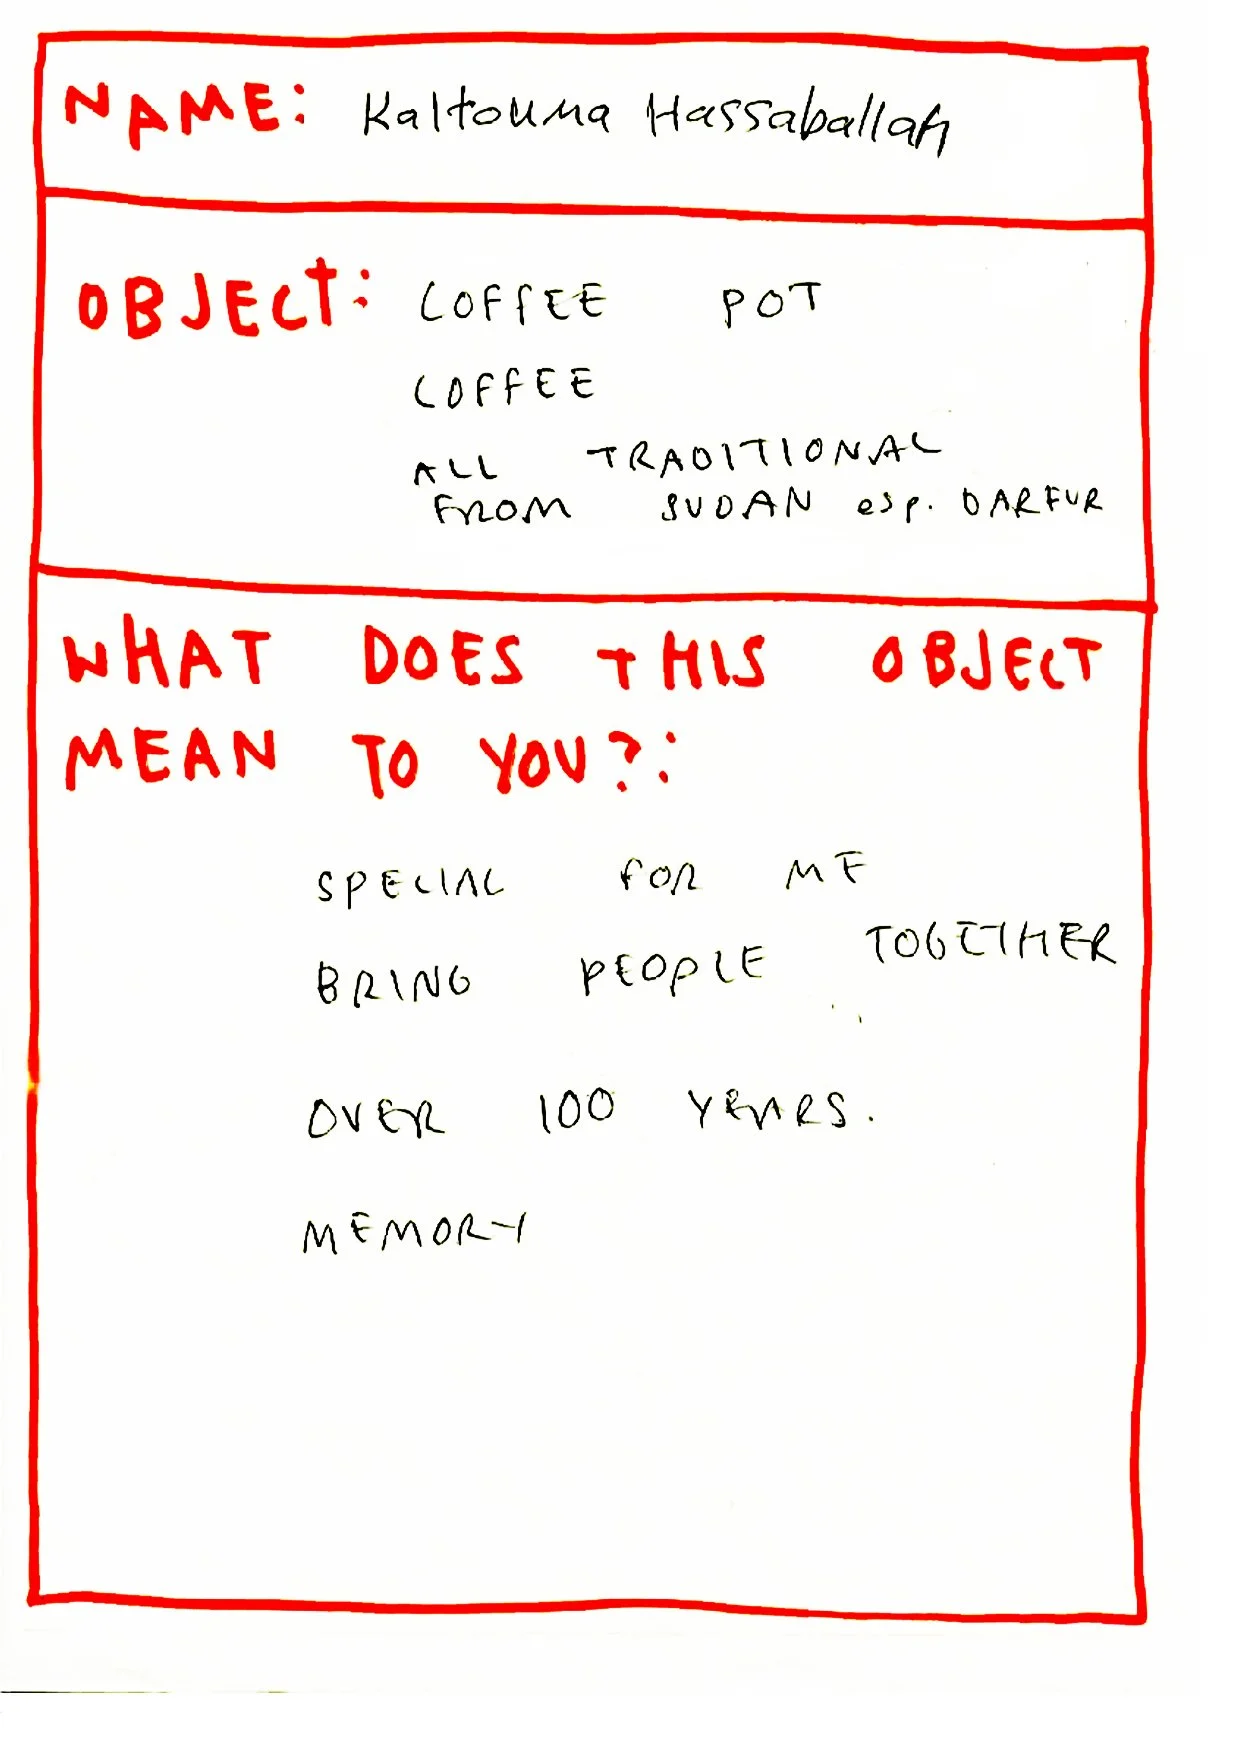 NAME: Kaltouma Hassaballah
OBJECT: COFFEE POT
COFFEE
ALL TRADITIONAL
FROM SUDAN esp. DARFUR
WHAT DOES THIS OBJECT
MEAN TO YOU?:
SPECIAL FOR ME
BRING PEOPLE TOGETHER
OVER 100 YEARS.
MEMORY